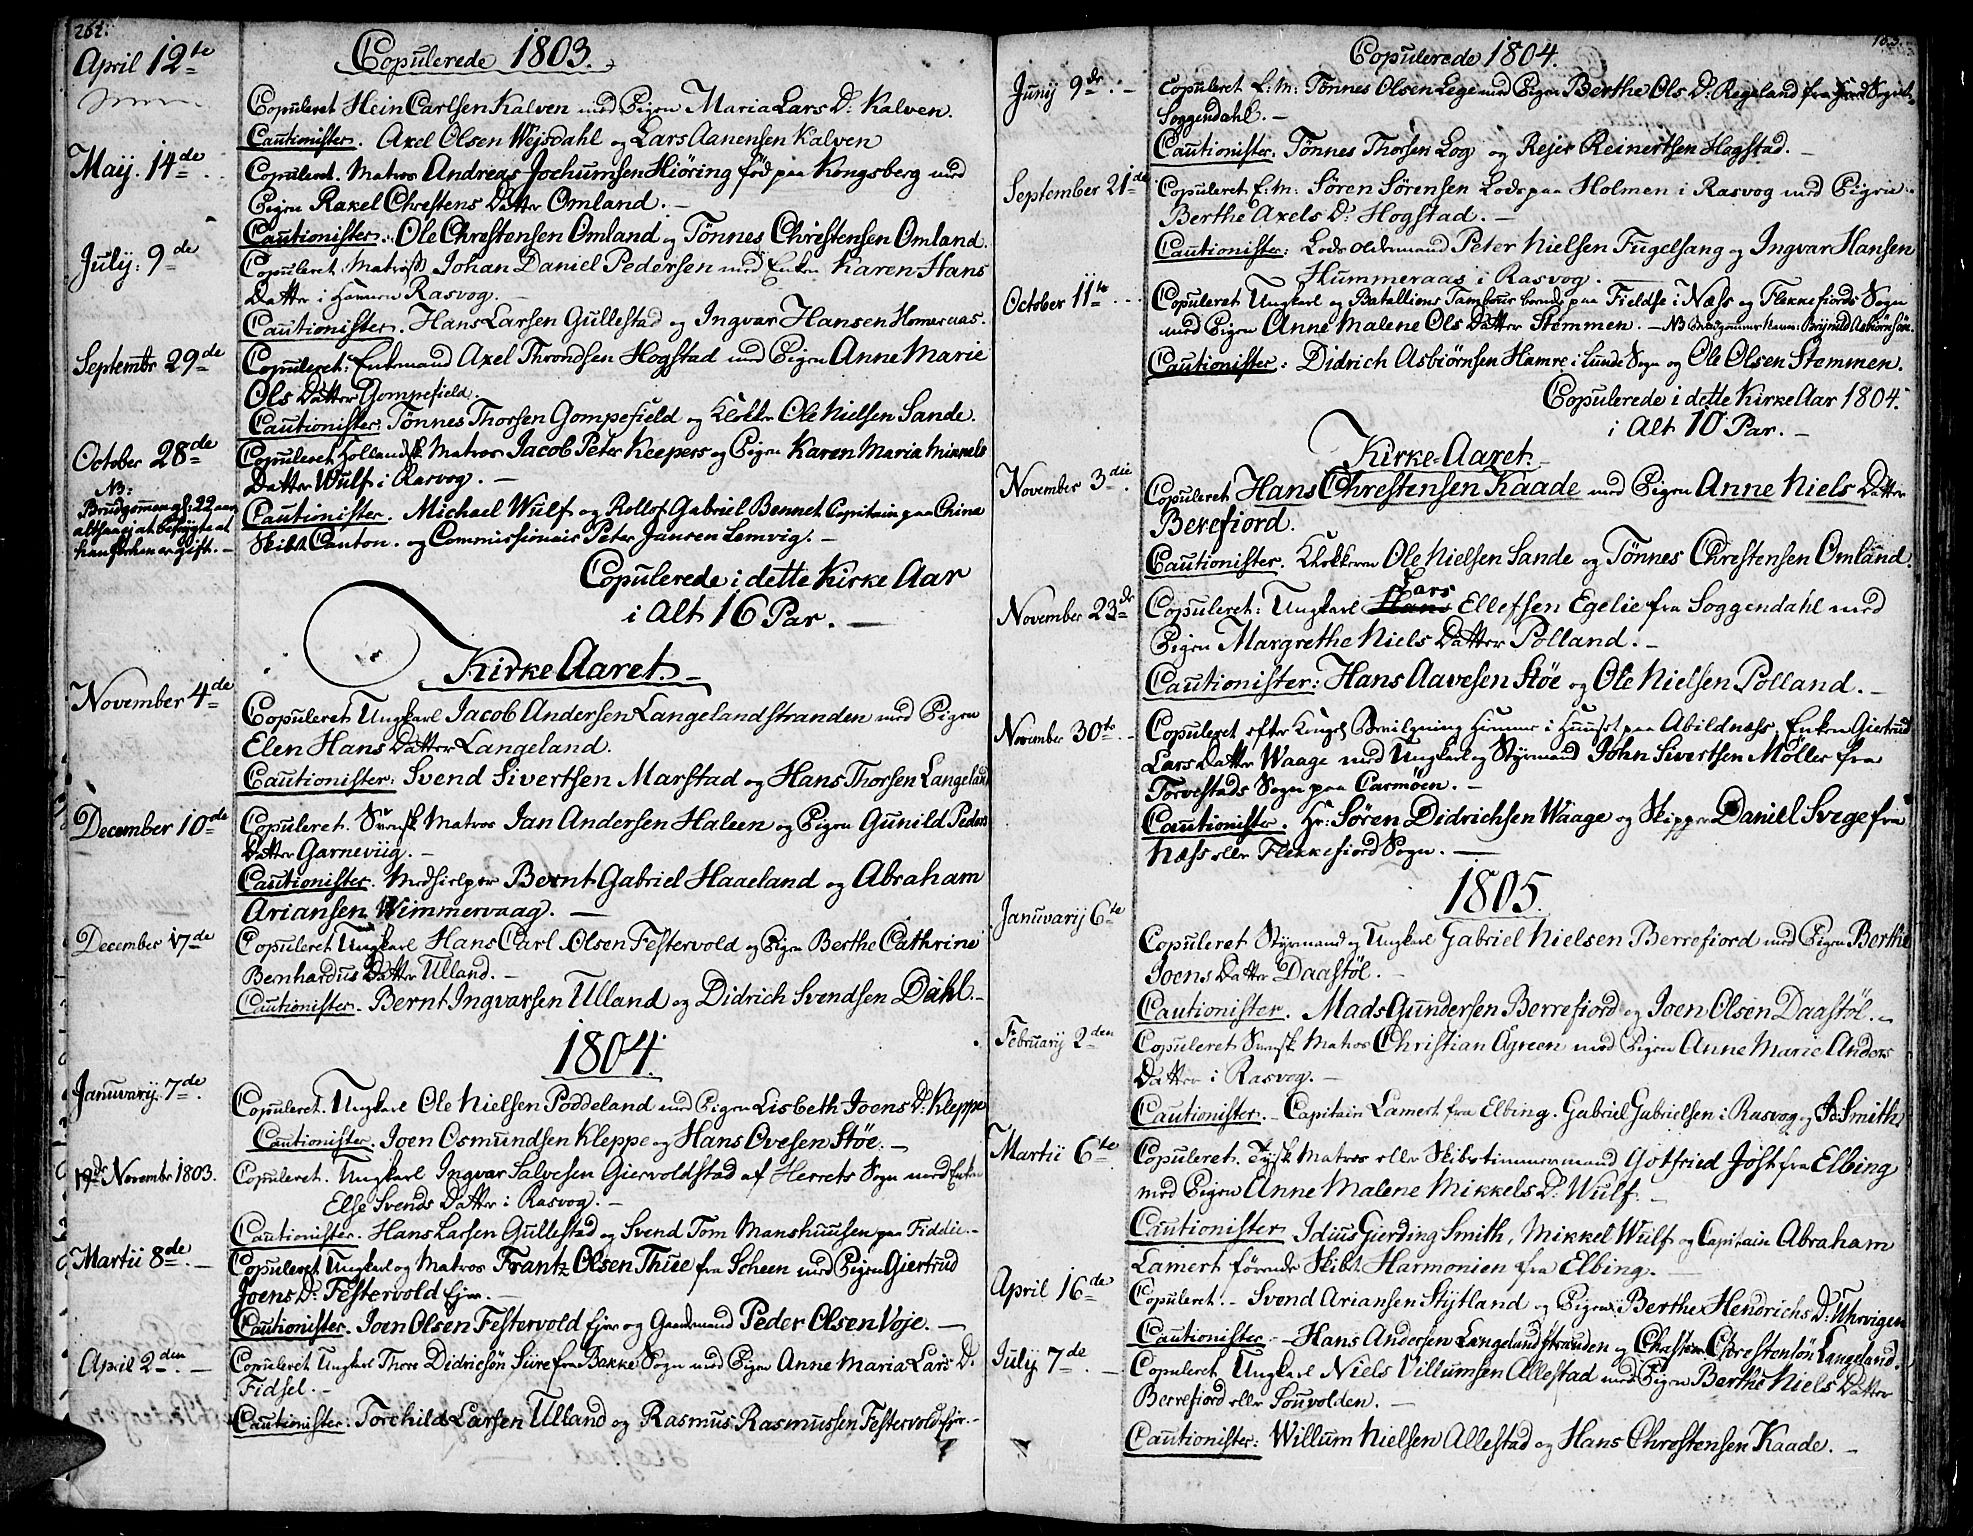 262.
Copulerede 1803.
April 12te
Copuleret Hein Carlsen Kalven med Pigen Maria Lars D. Kalven.
Cautionister. Axel Olsen Wejsdahl og Lars Aanensen Kalven
Maij. 14de
Copuleret. Matros Andreas Jochumsen Hiöring föd paa Kongsberg med
Pigen Rakel Chrestens Datter Omland. –
Cautionister. Ole Chrestensen Omland og Tönnes Christensen Omland.
July: 9de
Copuleret Matros Johan Daniel Pedersen med Enken Karen Hans
Datter i Rasvog. –
Cautionister. Hans Larsen Gullestad og Ingvar Hansen Homeraas.
Septembr 29de
Copuleret: Enkemand Axel Throndsen Hogstad med Pigen Anne Marie
Ols Datter Gompefield.
Cautionister. Tönnes Thorsen Gompefield og Klokker Ole Nielsen Sande.
October 28de
Copuleret Hollandsk Matros Jacob Peter Keepers og Pigen Karen Maria Mikkels
Datter Wulf i Rasvog. –
NB:
Brudgommen er 22 aar,
altsaa ej at befrygte at
han forhen er gift. –
Cautionister. Michael Wulf og Rollof Gabriel Bennet Capitain paa China
Skibet Canton. og Commissionair Peter Jansen Lemvig. –
Copulerede i dette Kirke Aar
i Alt 16 Par. –
Kirke Aaret. –
November 4de
Copuleret Ungkarl Jacob Andersen Langelandstranden med Pigen
Elen Hans Datter Langeland.
Cautionister: Svend Sivertsen Marstad og Hans Thorsen Langeland
December 10de
Copuleret. Svensk Matros Jan Andersen Haleen og Pigen Gunild Peders
Datter Garneviig. –
Cautionister. Medhielper Bernt Gabriel Haaeland og Abraham
Ariansen Wimmervaag. –
December 17de
Copuleret Ungkarl Hans Carl Olsen Festervold og Pigen Berthe Cathrine
Benhardus Datter Ulland. –
Cautionister. Bernt Ingvarsen Ulland og Didrich Svendsen Dahl. –
1804.
Januvarij 7de.
Copuleret. Ungkarl Ole Nielsen Poddeland med Pigen Lisbeth Joens D. Kleppe
Cautionister. Joen Osmundsen Kleppe og Hans Ovesen Stöe. –
19de November 1803.
Copuleret. Ungkarl Ingvar Salvesen Giervoldstad af Herrets Sogn med Enken
Else Svends Datter i Rasvog. –
Cautionister. Hans Larsen Gullestad og Svend Tom Manshuusen paa
Martii 8de. –
Copuleret Ungkarl og Matros Frantz Olsen Thue fra Scheen med Pigen Giertrud
Joens D. Festervold
Cautionister. Joen Olsen Festervold og Gaardmand Peder Olsen Voje. –
April 2den –
Copuleret Ungkarl Thore Didricsön Siire fra Bakke Sogn med Pigen Anne Maria Lars D.
Fidsel. –
Cautionister. Torchild Larsen Ulland og Rasmus Rasmussen Festervold
Copulerede 1804.
Junij 9de. –
Copuleret E: M: Tönnes Olsen Lege med Pigen Berthe Ols D. Rageland fra Sogn
Soggendahl. –
Cautionister. Tönnes Thorsen Log og Rejer Reinertsen Hagstad. –
September 21de
Copuleret E: M: Sören Sörensen Lods paa Holmen i Rasvog med Pigen
Berthe Axels D. Hogstad. –
Cautionister: Lods oldermand Peter Nielsen Fugelsang og Ingvar Hansen
Hummeraas i Rasvog. –
October 11te
Copuleret Ungkarl og Batallions Tambour boende paa Fieldse i Næss og Flekkefiords Sogn
med Pigen Anne Malene Ols Datter Stemmen. – NB Brudgommens Navn: Brynild Asbiörnsön.
Cautionister: Didrich Asbiörnsen Hamre i Lunde Sogn og Ole Olsen Stemmen.
Copulerede i dette Kirke Aar 1804.
i Alt 10 Par. –
Kirke-Aaret. –
November 3die.
Copuleret Hans Chrestensen Kaade med Pigen Anne Niels Datter
Berefiord.
Cautionister. Klokkeren Ole Nielsen Sande og Tönnes Chrestensen Omland.
November 23de
Copuleret: Ungkarl Lars Ellefsen Egelie fra Soggendahl med
Pigen Margrethe Niels Datter Polland. –
Cautionister: Hans Aavesen Stöe og Ole Nielsen Polland. –
November 30te
Copuleret efter Kongel Bevilgning hiemme i Huuset paa Abildnæss, Enken Giertrud
Lars Datter Waage med Ungkarl og Styrmand John Sivertsen Möller fra
Torvestads Sogn paa Carmöen. –
Cautionister. Hr: Sören Didrichsen Waage og Skipper Daniel Svege fra
Næss eller Flekkefiord Sogn. –
1805.
Januvarij 6te
Copuleret Styrmand og Ungkarl Gabriel Nielsen Berrefiord med Pigen Berthe
Joens Datter Daastöl. –
Cautionister. Mads Gundersen Berrefiord og Joen Olsen Daastöl. –
Februarij 2den
Copuleret Svensk Matros Christian Agreen med Pigen Anne Marie Anders
Datter i Rasvog. –
Cautionister. – Capitain Lamert fra Elbing. Gabriel Gabrielsen i Rasvog og Smith
Martii 6te
Copuleret. Tysk Matros eller Skibstimmermand Gotfried Jost fra Elbing
med Pigen Anne Malene Mikkels D. Wulf. –
Cautionister Idius Gierding Smith, Mikkel Wulf og Capitain Abraham
Lamert förende Skibet Harmonien fra Elbing. –
April 16de
Copuleret. – Svend Ariansen Stijtland og Pigen Berthe Hendrichs D. Uhrvigen
Cautionister – Hans Andersen Langelandstranden og Chresten Chrestensön Langeland.
July 7de. –
Copuleret Ungkarl Niels Villumsen Allestad med Pigen Berthe Niels Datter
Berrefiord eller Souvolden. –
Cautionister: Willum Nielsen Allestad og Hans Chrestensen Kaade. –